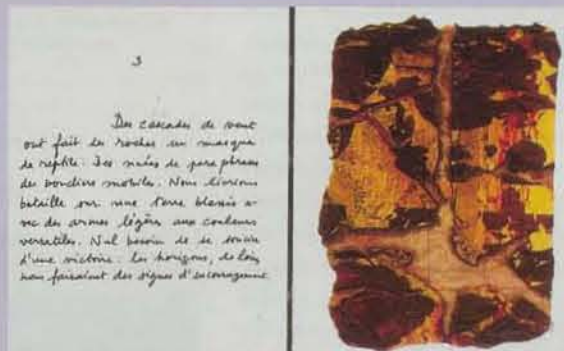 3
Des cascades de vent
ont fait les roches un masque
de reptile. Des nuées de paraphrases
des boucliers mobiles. Nous livrons
bataille sur une terre blessée a-
vec des armes légères aux couleurs
versatiles. Nul besoin de se soucier
d'une victoire. Les horizons, de loin,
nous faisaient des signes d'encouragement.